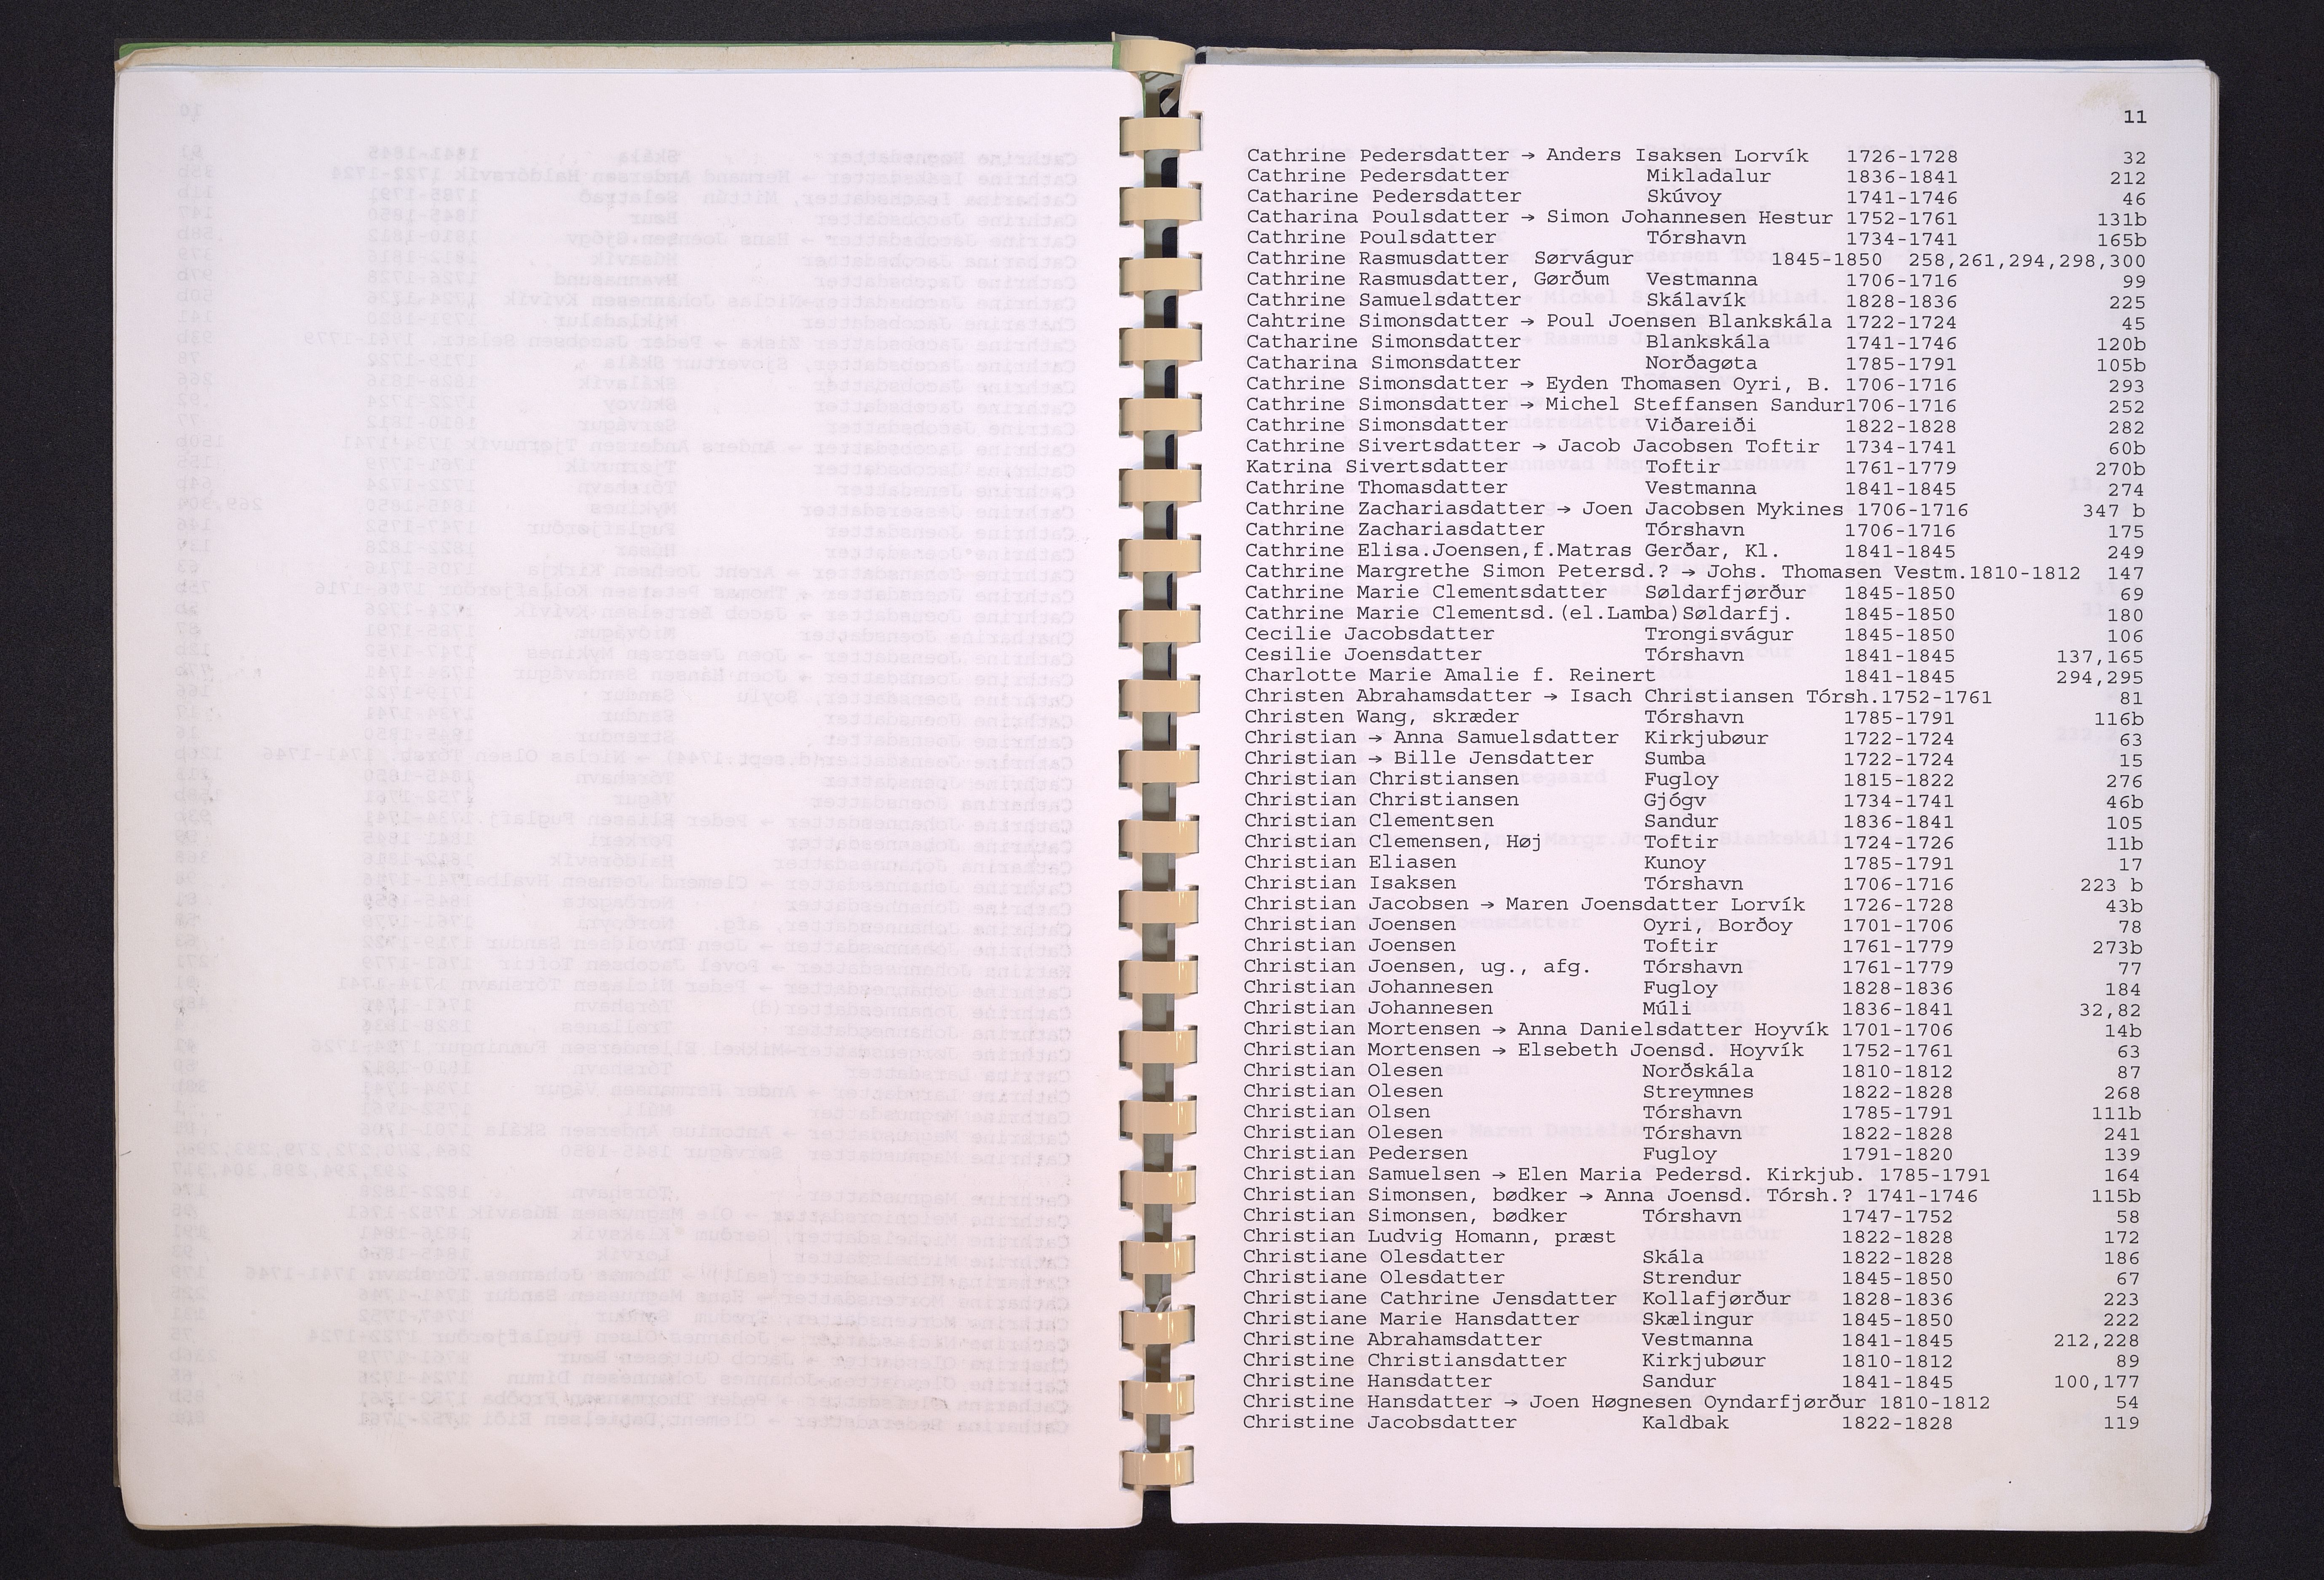 11
Cathrine Pedersdatter → Anders Isaksen Lorvík 1726-1728 32
Cathrine Pedersdatter Mikladalur 1836-1841 212
Catharine Pedersdatter Skúvoy 1741-1746 46
Catharina Poulsdatter → Simon Johannesen Hestur 1752-1761 131b
Cathrine Poulsdatter Tórshavn 1734-1741 165b
Cathrine Rasmusdatter Sørvágur 1845-1850 258,261,294,298,300
Cathrine Rasmusdatter, Gørðum Vestmanna 1706-1716 99
Cathrine Samuelsdatter Skálavík 1828-1836 225
Cahtrine Simonsdatter → Poul Joensen Blankskála 1722-1724 45
Catharine Simonsdatter Blankskála 1741-1746 120b
Catharina Simonsdatter Norðagøta 1785-1791 105b
Cathrine Simonsdatter → Eyden Thomasen Oyri, B. 1706-1716 293
Cathrine Simonsdatter → Michel Steffansen Sandur1706-1716 252
Cathrine Simonsdatter Viðareiði 1822-1828 282
Cathrine Sivertsdatter → Jacob Jacobsen Toftir 1734-1741 60b
Katrina Sivertsdatter Toftir 1761-1779 270b
Cathrine Thomasdatter Vestmanna 1841-1845 274
Cathrine Zachariasdatter → Joen Jacobsen Mykines 1706-1716 347 b
Cathrine Zachariasdatter Tórshavn 1706-1716 175
Cathrine Elisa.Joensen,f.Matras Gerðar, Kl. 1841-1845 249
Cathrine Margrethe Simon Petersd.? → Johs. Thomasen Vestm.1810-1812 147
Cathrine Marie Clementsdatter Søldarfjørður 1845-1850 69
Cathrine Marie Clementsd.(el.Lamba)Søldarfj. 1845-1850 180
Cecilie Jacobsdatter Trongisvágur 1845-1850 106
Cesilie Joensdatter Tórshavn 1841-1845 137,165
Charlotte Marie Amalie f. Reinert 1841-1845 294,295
Christen Abrahamsdatter → Isach Christiansen Tórsh.1752-1761 81
Christen Wang, skræder Tórshavn 1785-1791 116b
Christian → Anna Samuelsdatter Kirkjubøur 1722-1724 63
Christian → Bille Jensdatter Sumba 1722-1724 15
Christian Christiansen Fugloy 1815-1822 276
Christian Christiansen Gjógv 1734-1741 46b
Christian Clementsen Sandur 1836-1841 105
Christian Clemensen, Høj Toftir 1724-1726 11b
Christian Eliasen Kunoy 1785-1791 17
Christian Isaksen Tórshavn 1706-1716 223 b
Christian Jacobsen → Maren Joensdatter Lorvík 1726-1728 43b
Christian Joensen Oyri, Borðoy 1701-1706 78
Christian Joensen Toftir 1761-1779 273b
Christian Joensen, ug., afg. Tórshavn 1761-1779 77
Christian Johannesen Fugloy 1828-1836 184
Christian Johannesen Múli 1836-1841 32,82
Christian Mortensen → Anna Danielsdatter Hoyvík 1701-1706 14b
Christian Mortensen → Elsebeth Joensd. Hoyvík 1752-1761 63
Christian Olesen Norðskála 1810-1812 87
Christian Olesen Streymnes 1822-1828 268
Christian Olsen Tórshavn 1785-1791 111b
Christian Olesen Tórshavn 1822-1828 241
Christian Pedersen Fugloy 1791-1820 139
Christian Samuelsen → Elen Maria Pedersd. Kirkjub. 1785-1791 164
Christian Simonsen, bødker → Anna Joensd. Tórsh.? 1741-1746 115b
Christian Simonsen, bødker Tórshavn 1747-1752 58
Christian Ludvig Homann, præst 1822-1828 172
Christiane Olesdatter Skála 1822-1828 186
Christiane Olesdatter Strendur 1845-1850 67
Christiane Cathrine Jensdatter Kollafjørður 1828-1836 223
Christiane Marie Hansdatter Skælingur 1845-1850 222
Christine Abrahamsdatter Vestmanna 1841-1845 212,228
Christine Christiansdatter Kirkjubøur 1810-1812 89
Christine Hansdatter Sandur 1841-1845 100,177
Christine Hansdatter → Joen Høgnesen Oyndarfjørður 1810-1812 54
Christine Jacobsdatter Kaldbak 1822-1828 119